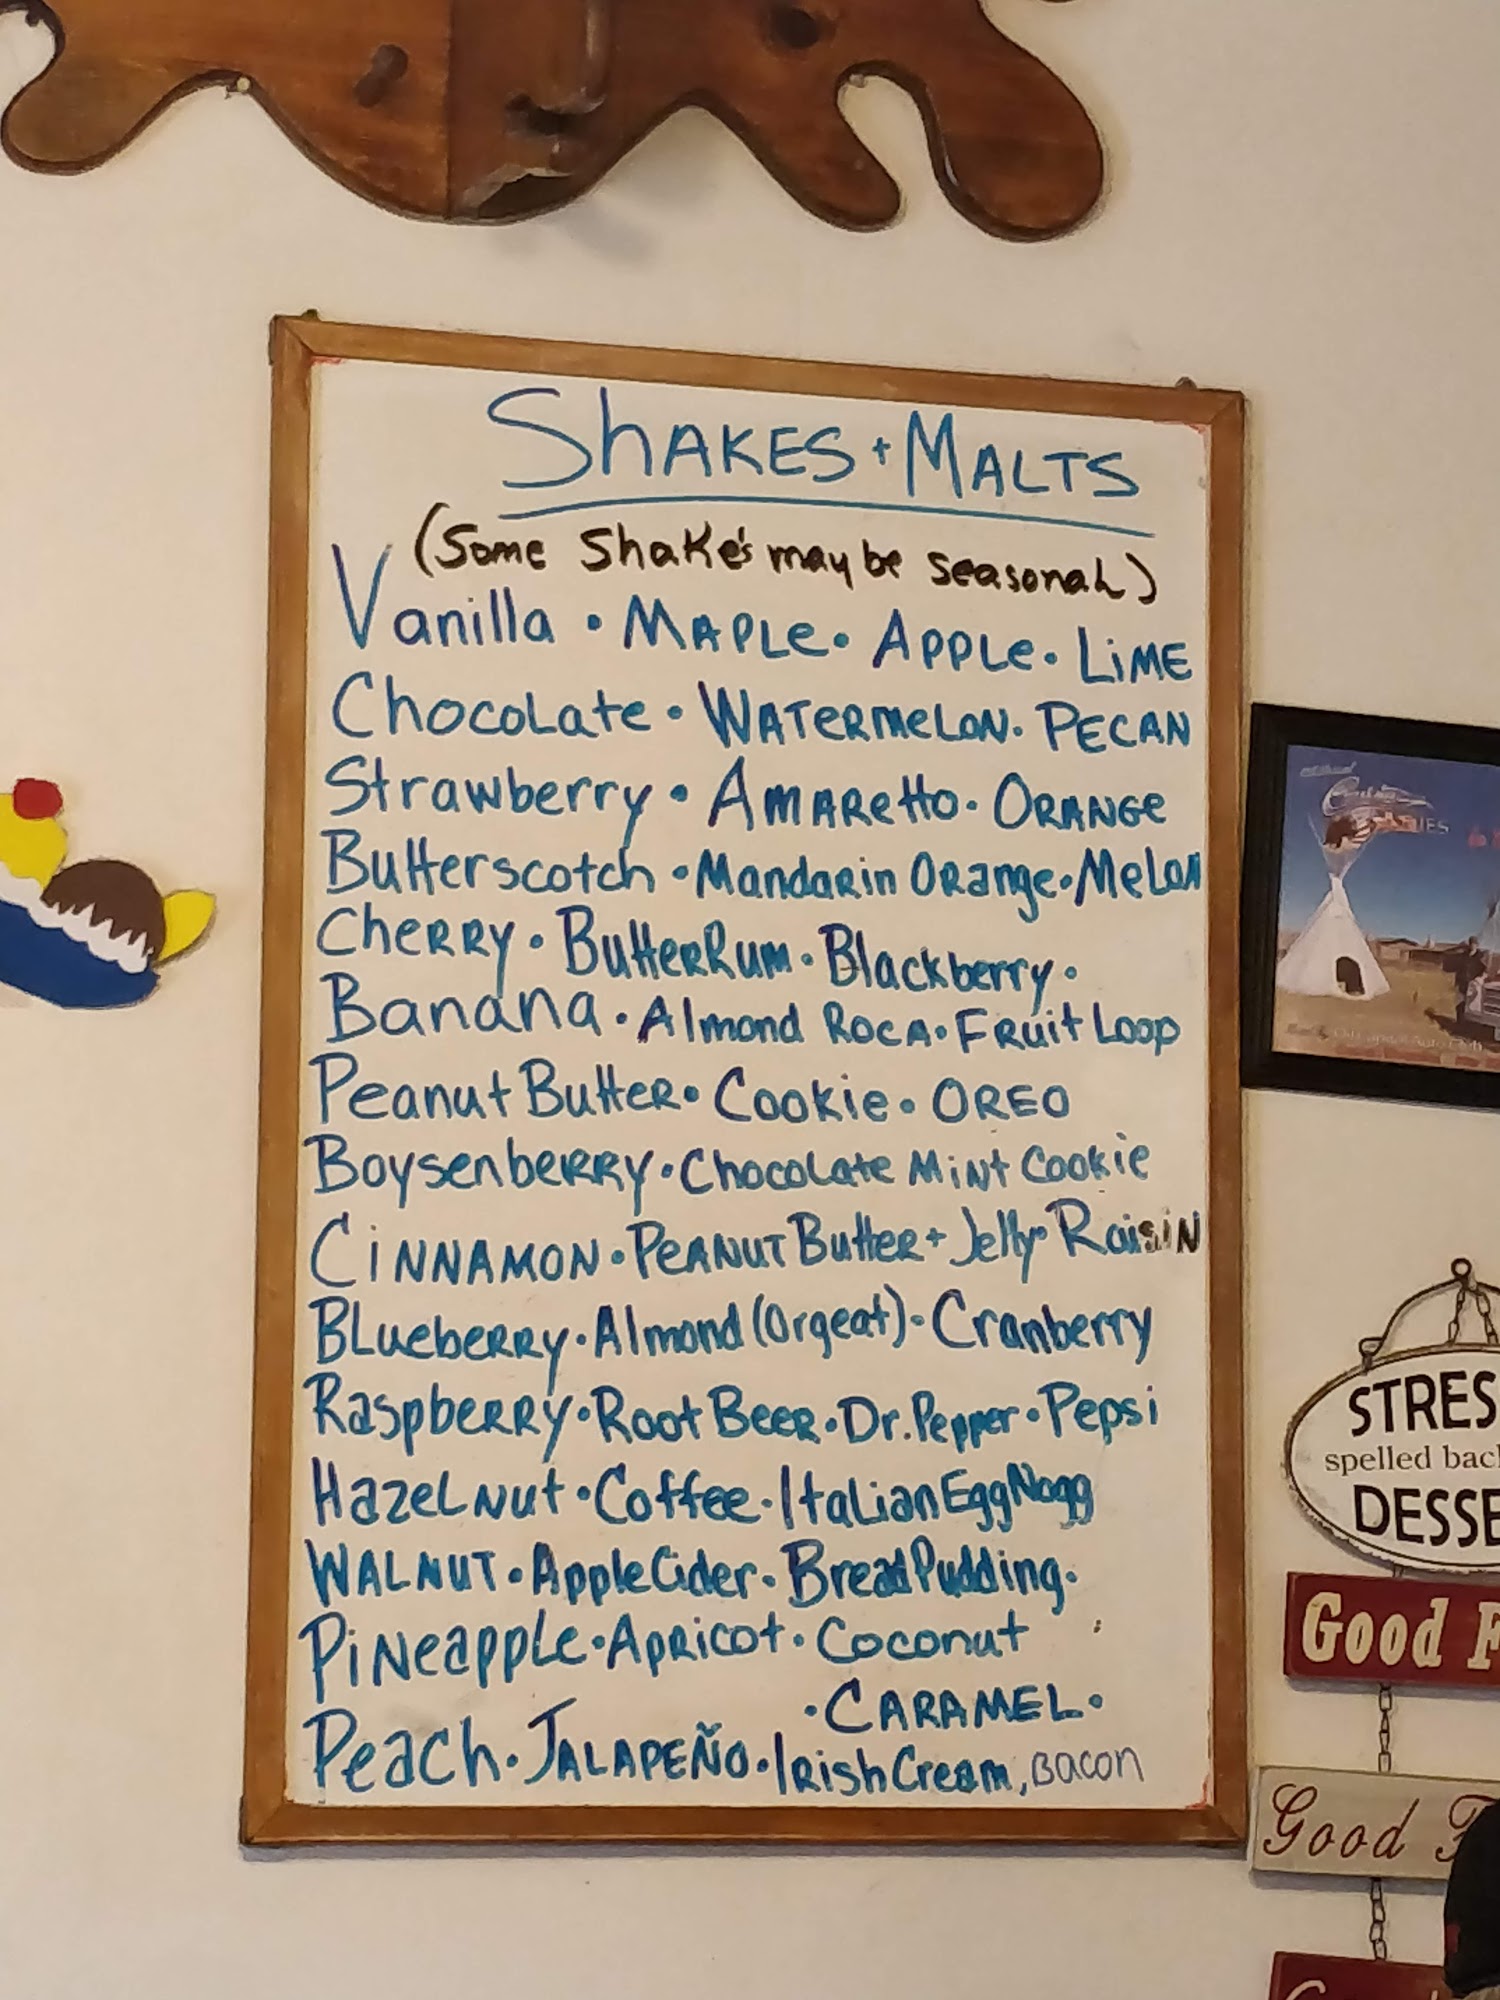 SHAKES + MALTS
(Some Shake's may be seasonal)
Vanilla • MAPLe • APPLe • LiME
Chocolate • WATermeLON • PECAN
Strawberry • AMARetto • ORANGe
Butterscotch • Mandarin ORange • MeLON
CheRRY • ButteRRum • Blackberry •
Banana • Almond ROCA • FRuit Loop
Peanut ButteR • Cookie • OREO
BoysenbeRRY • ChocoLate MiNt Cookie
CiNNAMON • PeANUT ButteR + Jelly • RaisiN
BLuebeRRY • Almond (Orgeat) • Cranberry
RaspbeRRY • Root BeeR • Dr. Pepper • Pepsi
HazeLNut • Coffee • ItaLian Egg Nogg
WALNUT • Apple Cider • Bread Pudding •
PiNeappLe • ApRicot • Coconut
• CARAMEL •
Peach • JALAPEÑO • IRish Cream, Bacon
STRES
spelled bac
DESSE
Good F
Good F